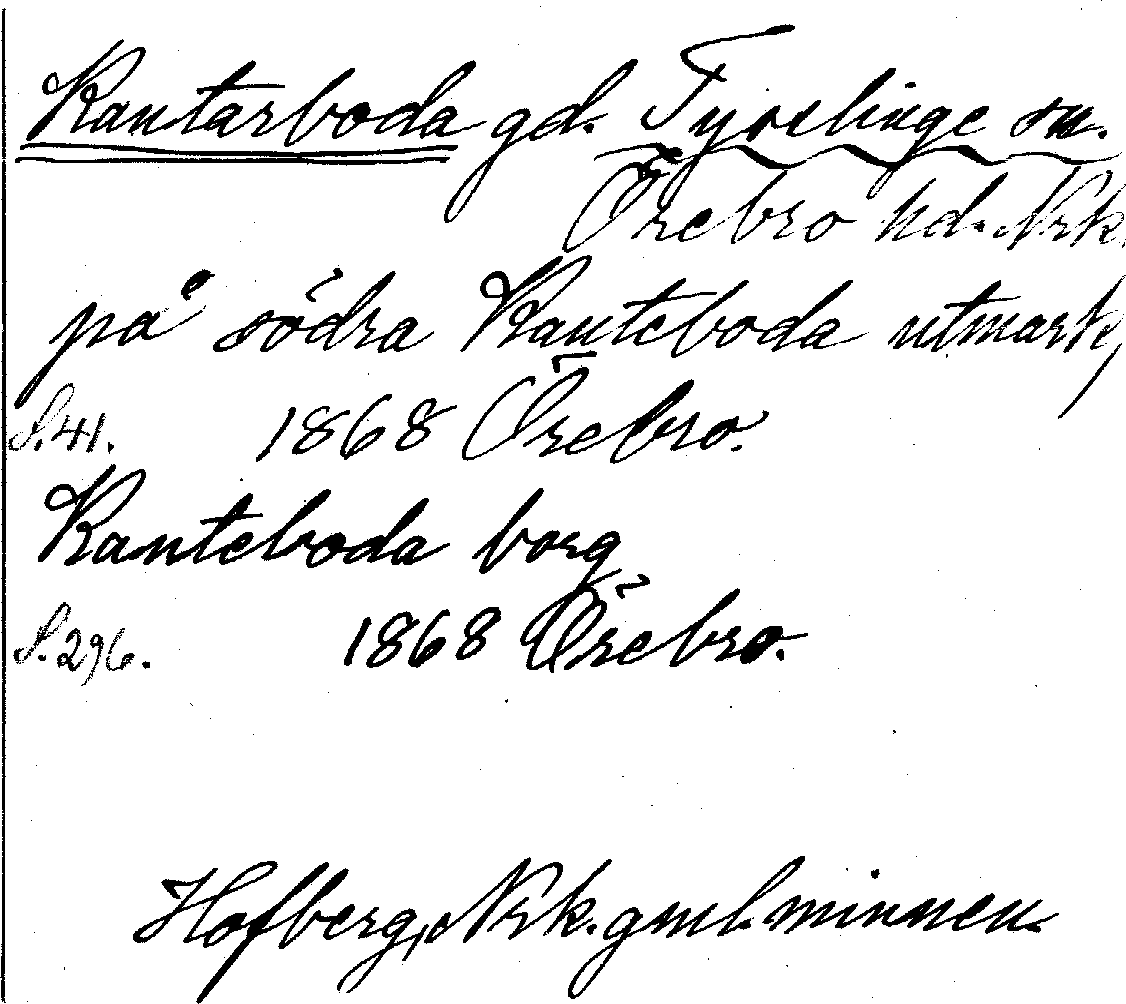 Kantarboda gd. Tysslinge sn.
Örebro hd. Nrk.
på södra Kanteboda utmark,
S. 41. 1868 Örebro.
Kanteboda borg
S. 296. 1868 Örebro.
Hofberg, Nrk. gml. minnen.